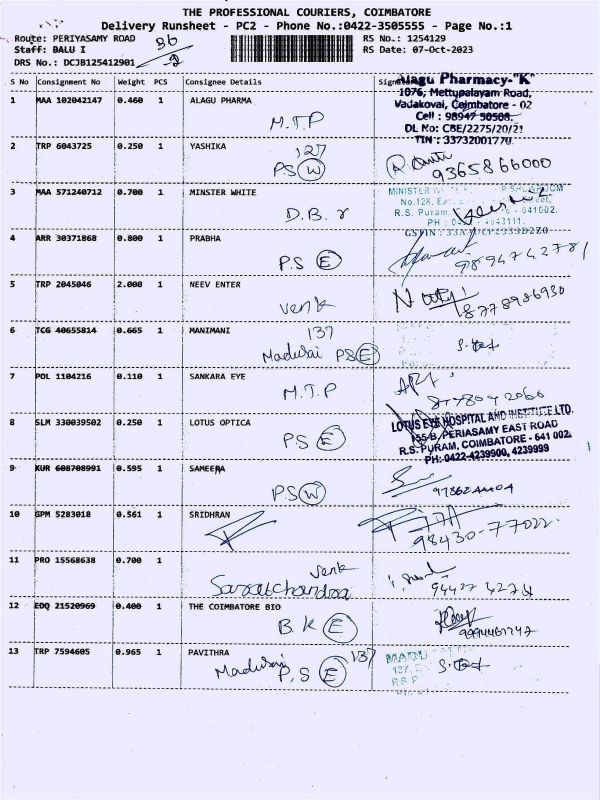 THE PROFESSIONAL COURIERS, COIMBATORE
Delivery Runsheet - PC2 - Phone No.:0422-3505555 - Page No.:1
Route: PERIYASAMY ROAD
RS No.: 1254129
Staff: BALU I
RS Date: 07-Oct-2023
DRS No.: DCJB125412901
S No Consignment No Weight PCS Consignee Details
1 MAA 102042147 0.460 1 ALAGU PHARMA
M.T.P
Alagu Pharmacy-"K"
1076, Mettupalayam Road,
Vadakovai, Coimbatore - 02
Cell : 98947 50508.
DL No: CBE/2275/20/21
TIN : 33732001770
2 TRP 6043725 0.250 1 YASHIKA
127
PS W
9365866000
3 MAA 571240712 0.700 1 MINSTER WHITE
D.B. r
MINISTER SHOWROOM
No.128,
R.S. Puram, - 641002.
4 ARR 30371868 0.800 1 PRABHA
P.S E
9894742781
5 TRP 2045046 2.000 1 NEEV ENTER
venk
8778986930
6 TCG 40655814 0.665 1 MANIMANI
137
Madurai PS E
7 POL 1104216 0.110 1 SANKARA EYE
M.T.P
8 SLM 330039502 0.250 1 LOTUS OPTICA
P.S E
LOTUS EYE HOSPITAL AND INSTITUTE LTD.
155-B, PERIASAMY EAST ROAD
R.S. PURAM, COIMBATORE - 641 002.
PH: 0422-4239900, 4239999
9 KUR 608708991 0.595 1 SAMEERA
PS W
10 GPM 5283018 0.561 1 SRIDHRAN
98430-77022
11 PRO 15568638 0.700 1
venk
Saratchandra
94427 4274
12 EDQ 21520969 0.400 1 THE COIMBATORE BIO
B.K E
13 TRP 7594605 0.965 1 PAVITHRA
137
Madurai P.S E